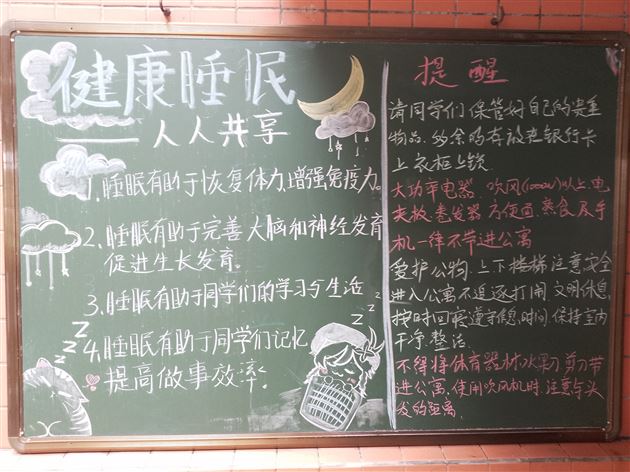 健康睡眠
——人人共享
1. 睡眠有助于恢复体力,增强免疫力。
2. 睡眠有助于完善大脑和神经发育
促进生长发育。
3. 睡眠有助于同学们的学习与生活
4. 睡眠有助于同学们记忆
提高做事效率.
z z z
z z z
提醒
请同学们保管好自己的贵重
物品,多余的存放走银行卡
上衣柜上锁.
大功率电器 吹风(1000w)以上.电
夹板.卷发器.方便面.熟食及手
机一律不带进公寓
爱护公物.上下楼梯注意安全
进入公寓不追逐打闹.文明休息,
按时回寝遵守休息时间.保持室内
干净.整洁.
不得将体育器材.水果刀.剪刀带
进公寓.使用吹风机时.注意与头
发的距离.